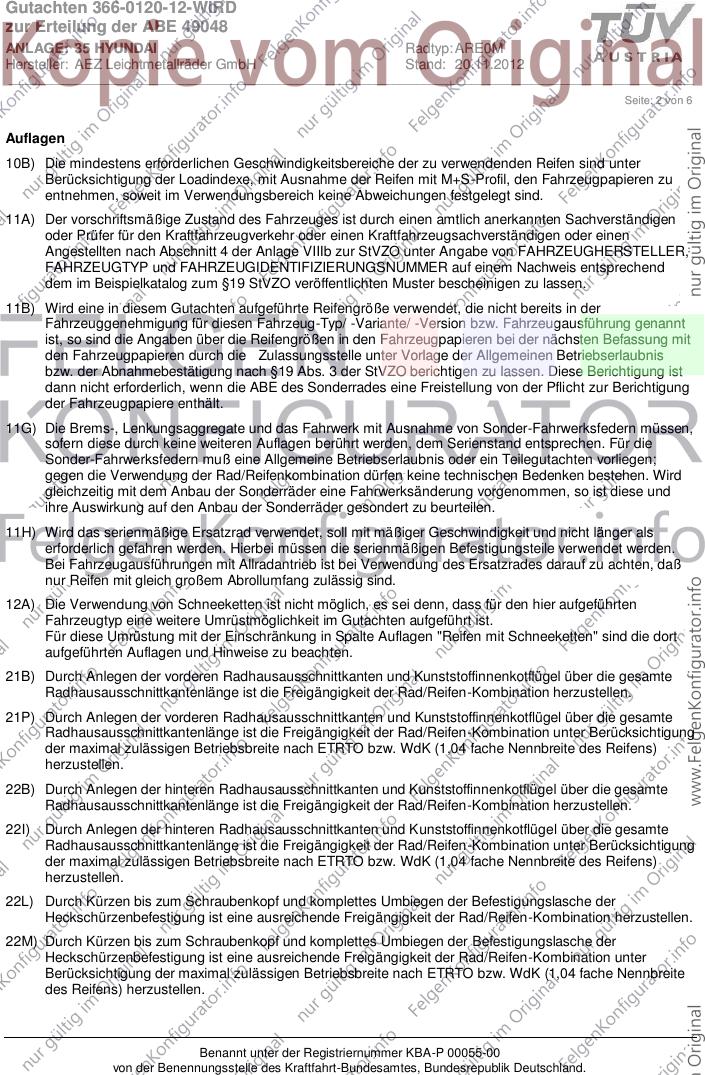 Gutachten 366-0120-12-WIRD
zur Erteilung der ABE 49048
ANLAGE: 35 HYUNDAI
Radtyp: ARE0M
Hersteller: AEZ Leichtmetallräder GmbH
Stand: 20.11.2012
TÜV
AUSTRIA
Kopie vom Original
Seite: 2 von 6
Auflagen
10B) Die mindestens erforderlichen Geschwindigkeitsbereiche der zu verwendenden Reifen sind unter
Berücksichtigung der Loadindexe, mit Ausnahme der Reifen mit M+S-Profil, den Fahrzeugpapieren zu
entnehmen, soweit im Verwendungsbereich keine Abweichungen festgelegt sind.
11A) Der vorschriftsmäßige Zustand des Fahrzeuges ist durch einen amtlich anerkannten Sachverständigen
oder Prüfer für den Kraftfahrzeugverkehr oder einen Kraftfahrzeugsachverständigen oder einen
Angestellten nach Abschnitt 4 der Anlage VIIIb zur StVZO unter Angabe von FAHRZEUGHERSTELLER,
FAHRZEUGTYP und FAHRZEUGIDENTIFIZIERUNGSNUMMER auf einem Nachweis entsprechend
dem im Beispielkatalog zum §19 StVZO veröffentlichten Muster bescheinigen zu lassen.
11B) Wird eine in diesem Gutachten aufgeführte Reifengröße verwendet, die nicht bereits in der
Fahrzeuggenehmigung für diesen Fahrzeug-Typ/ -Variante/ -Version bzw. Fahrzeugausführung genannt
ist, so sind die Angaben über die Reifengrößen in den Fahrzeugpapieren bei der nächsten Befassung mit
den Fahrzeugpapieren durch die Zulassungsstelle unter Vorlage der Allgemeinen Betriebserlaubnis
bzw. der Abnahmebestätigung nach §19 Abs. 3 der StVZO berichtigen zu lassen. Diese Berichtigung ist
dann nicht erforderlich, wenn die ABE des Sonderrades eine Freistellung von der Pflicht zur Berichtigung
der Fahrzeugpapiere enthält.
11G) Die Brems-, Lenkungsaggregate und das Fahrwerk mit Ausnahme von Sonder-Fahrwerksfedern müssen,
sofern diese durch keine weiteren Auflagen berührt werden, dem Serienstand entsprechen. Für die
Sonder-Fahrwerksfedern muß eine Allgemeine Betriebserlaubnis oder ein Teilegutachten vorliegen;
gegen die Verwendung der Rad/Reifenkombination dürfen keine technischen Bedenken bestehen. Wird
gleichzeitig mit dem Anbau der Sonderräder eine Fahrwerksänderung vorgenommen, so ist diese und
ihre Auswirkung auf den Anbau der Sonderräder gesondert zu beurteilen.
11H) Wird das serienmäßige Ersatzrad verwendet, soll mit mäßiger Geschwindigkeit und nicht länger als
erforderlich gefahren werden. Herbei müssen die serienmäßigen Befestigungsteile verwendet werden.
Bei Fahrzeugausführungen mit Allradantrieb ist bei Verwendung des Ersatzrades darauf zu achten, daß
nur Reifen mit gleich großem Abrollumfang zulässig sind.
12A) Die Verwendung von Schneeketten ist nicht möglich, es sei denn, dass für den hier aufgeführten
Fahrzeugtyp eine weitere Umrüstmöglichkeit im Gutachten aufgeführt ist.
Für diese Umrüstung mit der Einschränkung in Spalte Auflagen "Reifen mit Schneeketten" sind die dort
aufgeführten Auflagen und Hinweise zu beachten.
21B) Durch Anlegen der vorderen Radhausausschnittkanten und Kunststoffinnenkotflügel über die gesamte
Radhausausschnittkantenlänge ist die Freigängigkeit der Rad/Reifen-Kombination herzustellen.
21P) Durch Anlegen der vorderen Radhausausschnittkanten und Kunststoffinnenkotflügel über die gesamte
Radhausausschnittkantenlänge ist die Freigängigkeit der Rad/Reifen-Kombination unter Berücksichtigung
der maximal zulässigen Betriebsbreite nach ETRTO bzw. WdK (1,04 fache Nennbreite des Reifens)
herzustellen.
22B) Durch Anlegen der hinteren Radhausausschnittkanten und Kunststoffinnenkotflügel über die gesamte
Radhausausschnittkantenlänge ist die Freigängigkeit der Rad/Reifen-Kombination herzustellen.
22I) Durch Anlegen der hinteren Radhausausschnittkanten und Kunststoffinnenkotflügel über die gesamte
Radhausausschnittkantenlänge ist die Freigängigkeit der Rad/Reifen-Kombination unter Berücksichtigung
der maximal zulässigen Betriebsbreite nach ETRTO bzw. WdK (1,04 fache Nennbreite des Reifens)
herzustellen.
22L) Durch Kürzen bis zum Schraubenkopf und komplettes Umbiegen der Befestigungslasche der
Heckschürzenbefestigung ist eine ausreichende Freigängigkeit der Rad/Reifen-Kombination herzustellen.
22M) Durch Kürzen bis zum Schraubenkopf und komplettes Umbiegen der Befestigungslasche der
Heckschürzenbefestigung ist eine ausreichende Freigängigkeit der Rad/Reifen-Kombination unter
Berücksichtigung der maximal zulässigen Betriebsbreite nach ETRTO bzw. WdK (1,04 fache Nennbreite
des Reifens) herzustellen.
Benannt unter der Registriernummer KBA-P 00055-00
von der Benennungsstelle des Kraftfahrt-Bundesamtes, Bundesrepublik Deutschland.
FELGEN
KONFIGURATOR
FelgenKonfigurator.info
nur gültig im Original
www.FelgenKonfigurator.info